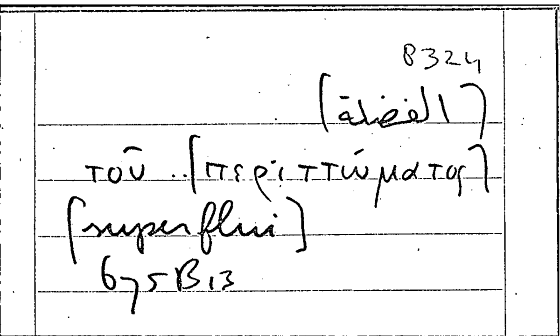 B324
[الفضلة]
τοῦ ..[περιττώματος]
[superflui]
675B13